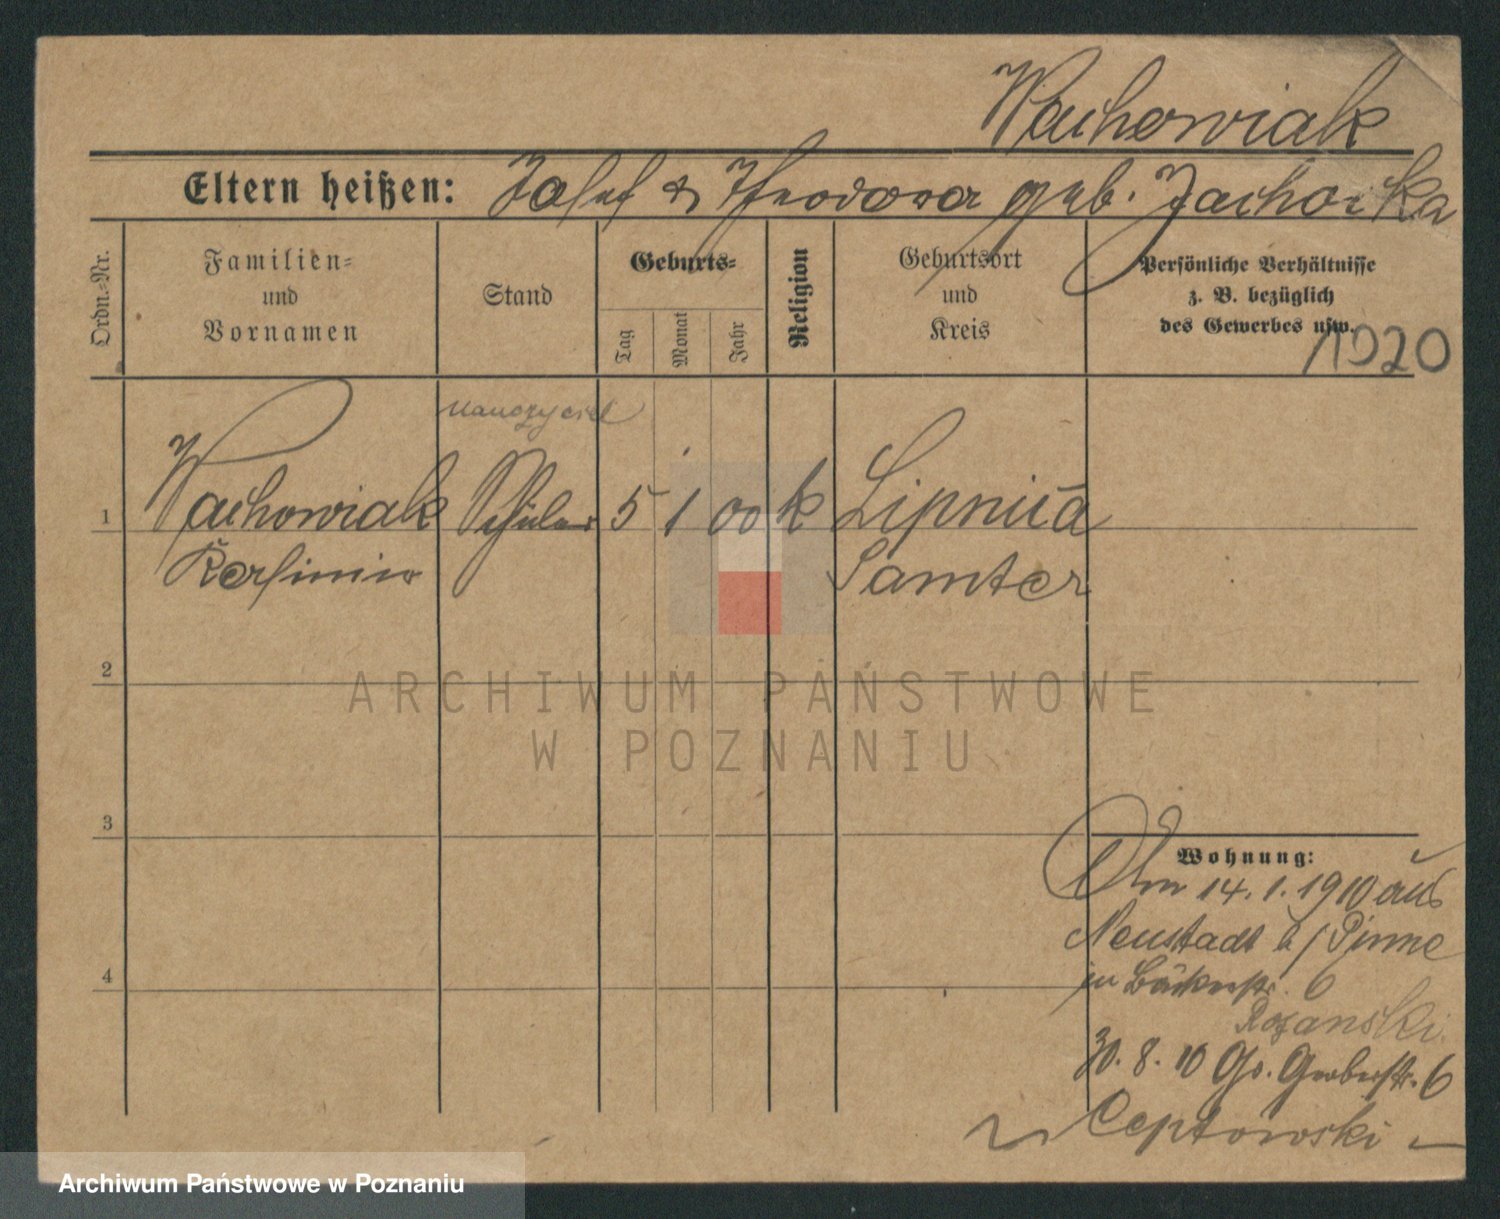 Wachowiak
Eltern heißen: Josef & Theodora geb. Zachocka
Ordn.-Nr.
Familien-
und
Vornamen
Stand
Geburts-
Tag
Monat
Jahr
Religion
Geburtsort
und
Kreis
Persönliche Verhältnisse
z. B. bezüglich
des Gewerbes usw.
1920
nauczyciel
1 Wachowiak Schüler 5 1 00 k Lipnica
Samter
2
3
4
ARCHIWUM PAŃSTWOWE
W POZNANIU
Wohnung:
14.1.1910 aus
Neustadt b/Pinne
in Bäckerstr. 6
Rozanski
30. 8. 10 Gr. Gerberstr. 6
Ceptowski
Archiwum Państwowe w Poznaniu